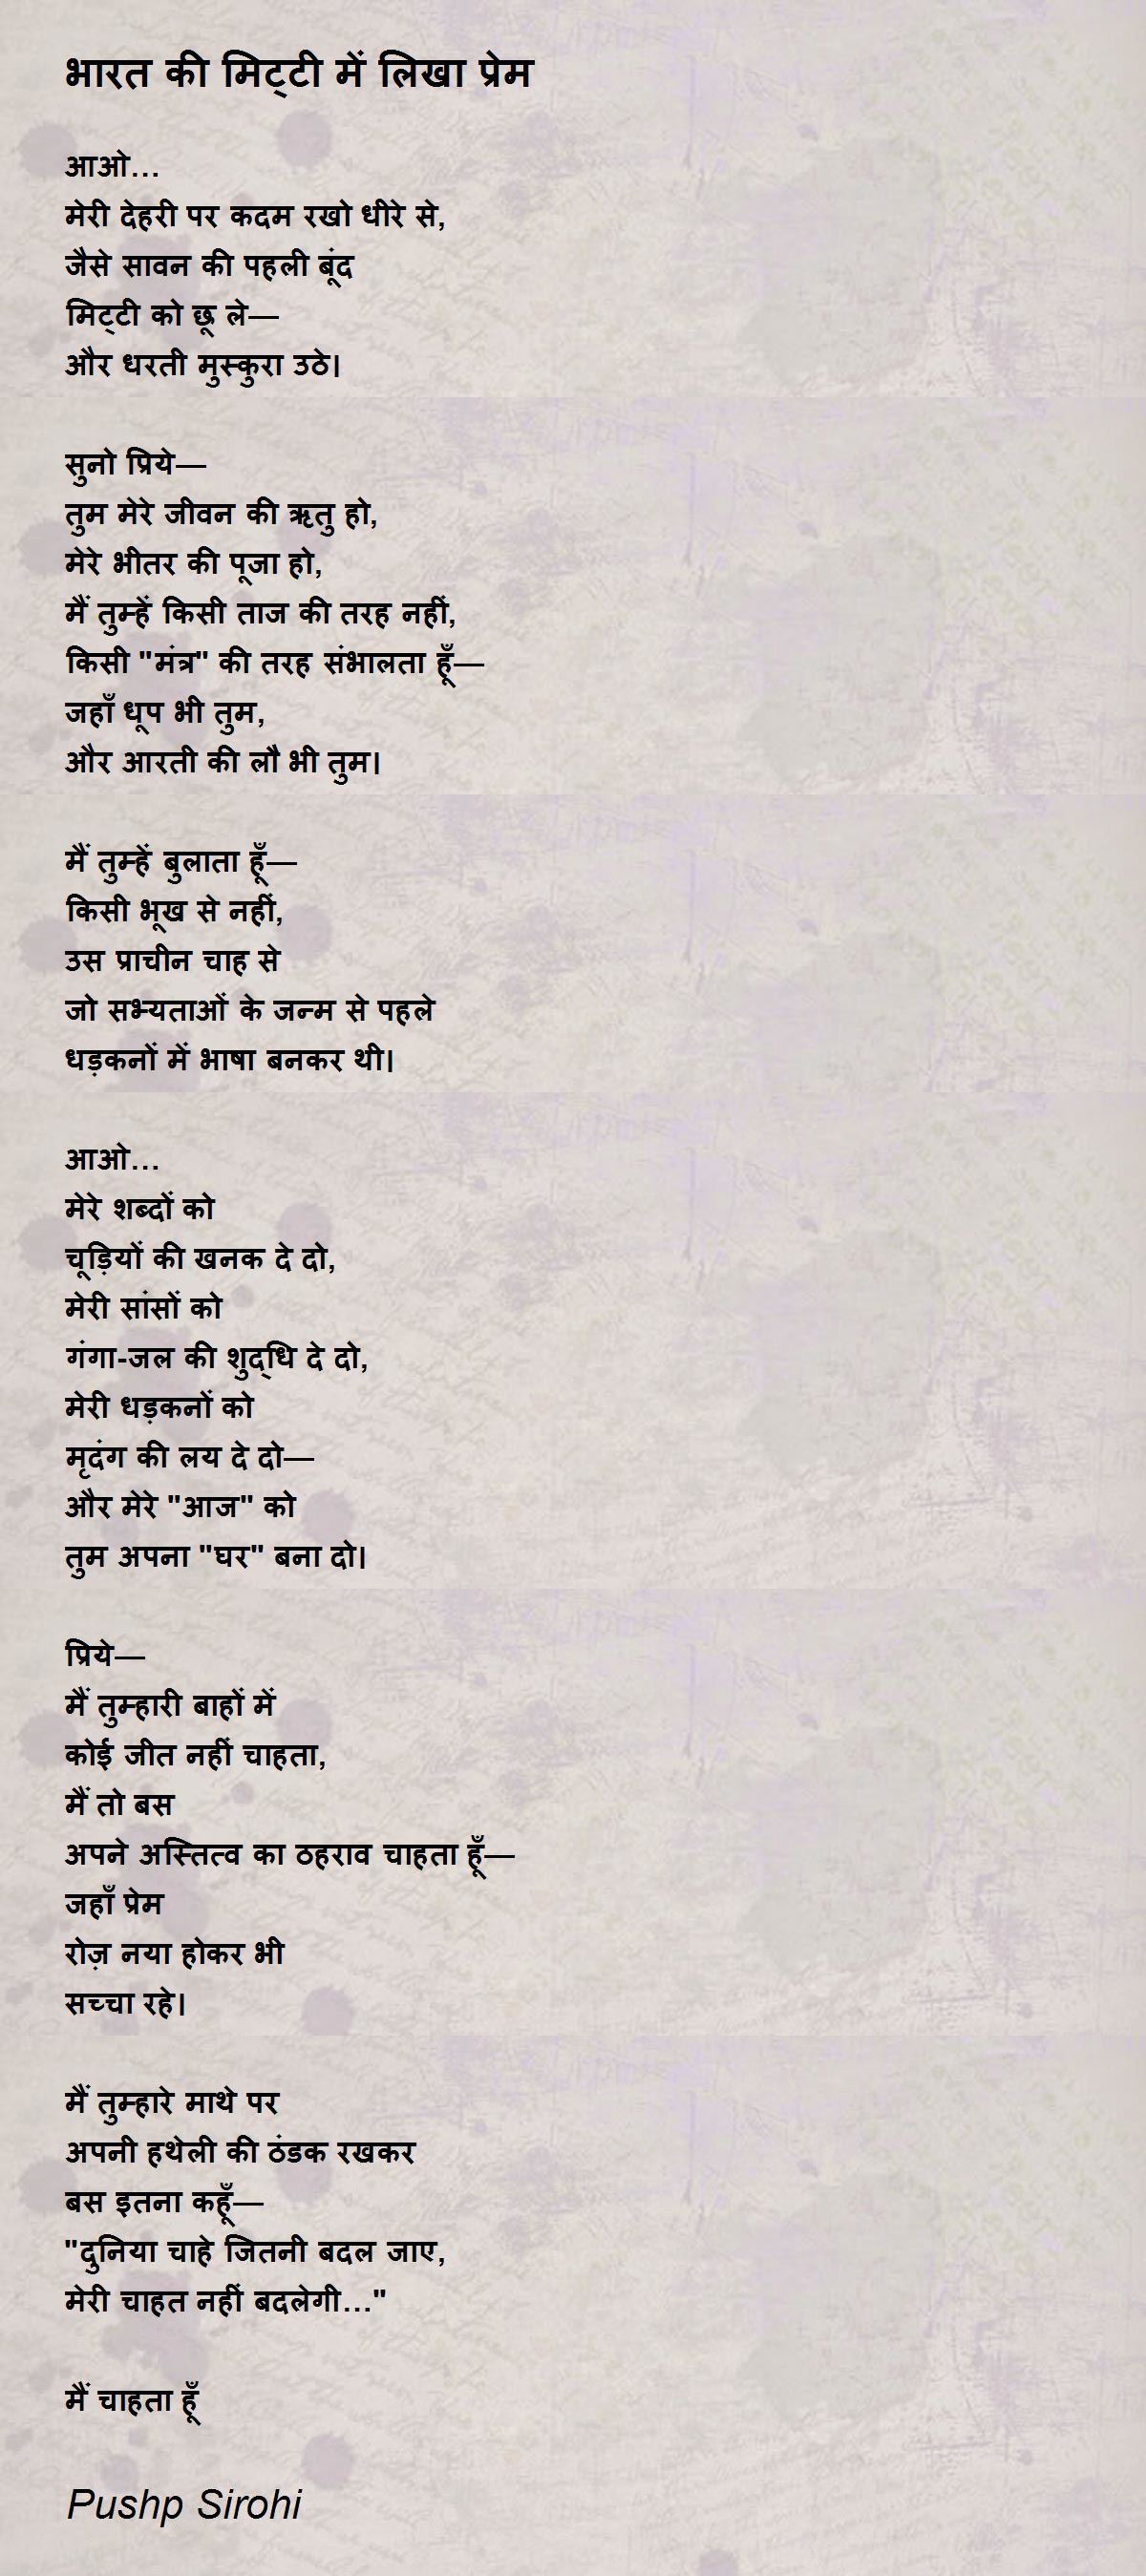 भारत की मिट्टी में लिखा प्रेम
आओ...
मेरी देहरी पर कदम रखो धीरे से,
जैसे सावन की पहली बूंद
मिट्टी को छू ले—
और धरती मुस्कुरा उठे।
सुनो प्रिये—
तुम मेरे जीवन की ऋतु हो,
मेरे भीतर की पूजा हो,
मैं तुम्हें किसी ताज की तरह नहीं,
किसी "मंत्र" की तरह संभालता हूँ—
जहाँ धूप भी तुम,
और आरती की लौ भी तुम।
मैं तुम्हें बुलाता हूँ—
किसी भूख से नहीं,
उस प्राचीन चाह से
जो सभ्यताओं के जन्म से पहले
धड़कनों में भाषा बनकर थी।
आओ...
मेरे शब्दों को
चूड़ियों की खनक दे दो,
मेरी सांसों को
गंगा-जल की शुद्धि दे दो,
मेरी धड़कनों को
मृदंग की लय दे दो—
और मेरे "आज" को
तुम अपना "घर" बना दो।
प्रिये—
मैं तुम्हारी बाहों में
कोई जीत नहीं चाहता,
मैं तो बस
अपने अस्तित्व का ठहराव चाहता हूँ—
जहाँ प्रेम
रोज़ नया होकर भी
सच्चा रहे।
मैं तुम्हारे माथे पर
अपनी हथेली की ठंडक रखकर
बस इतना कहूँ—
"दुनिया चाहे जितनी बदल जाए,
मेरी चाहत नहीं बदलेगी..."
मैं चाहता हूँ
Pushp Sirohi